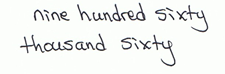 nine hundred sixty
thousand sixty